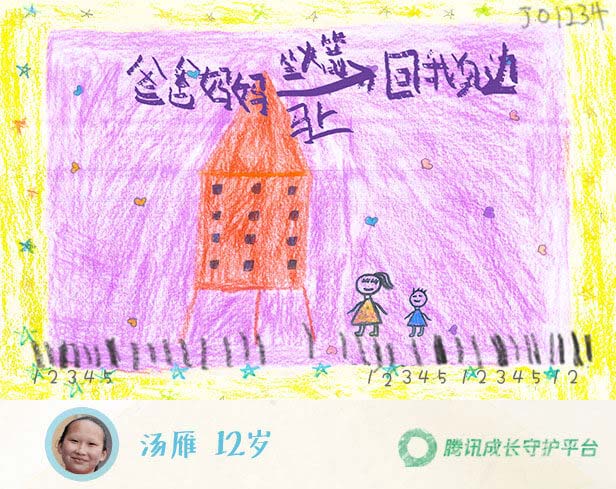 JO1234
坐火箭
爸爸妈妈 → 回我身边
马上
12345 12345 12345 12
汤雁 12岁
腾讯成长守护平台